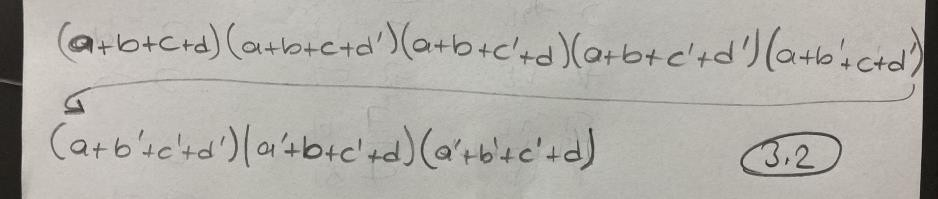 (a+b+c+d)(a+b+c+d')(a+b+c'+d)(a+b+c'+d')(a+b'+c+d')
(a+b'+c'+d')(a'+b+c'+d)(a'+b'+c'+d) 3.2